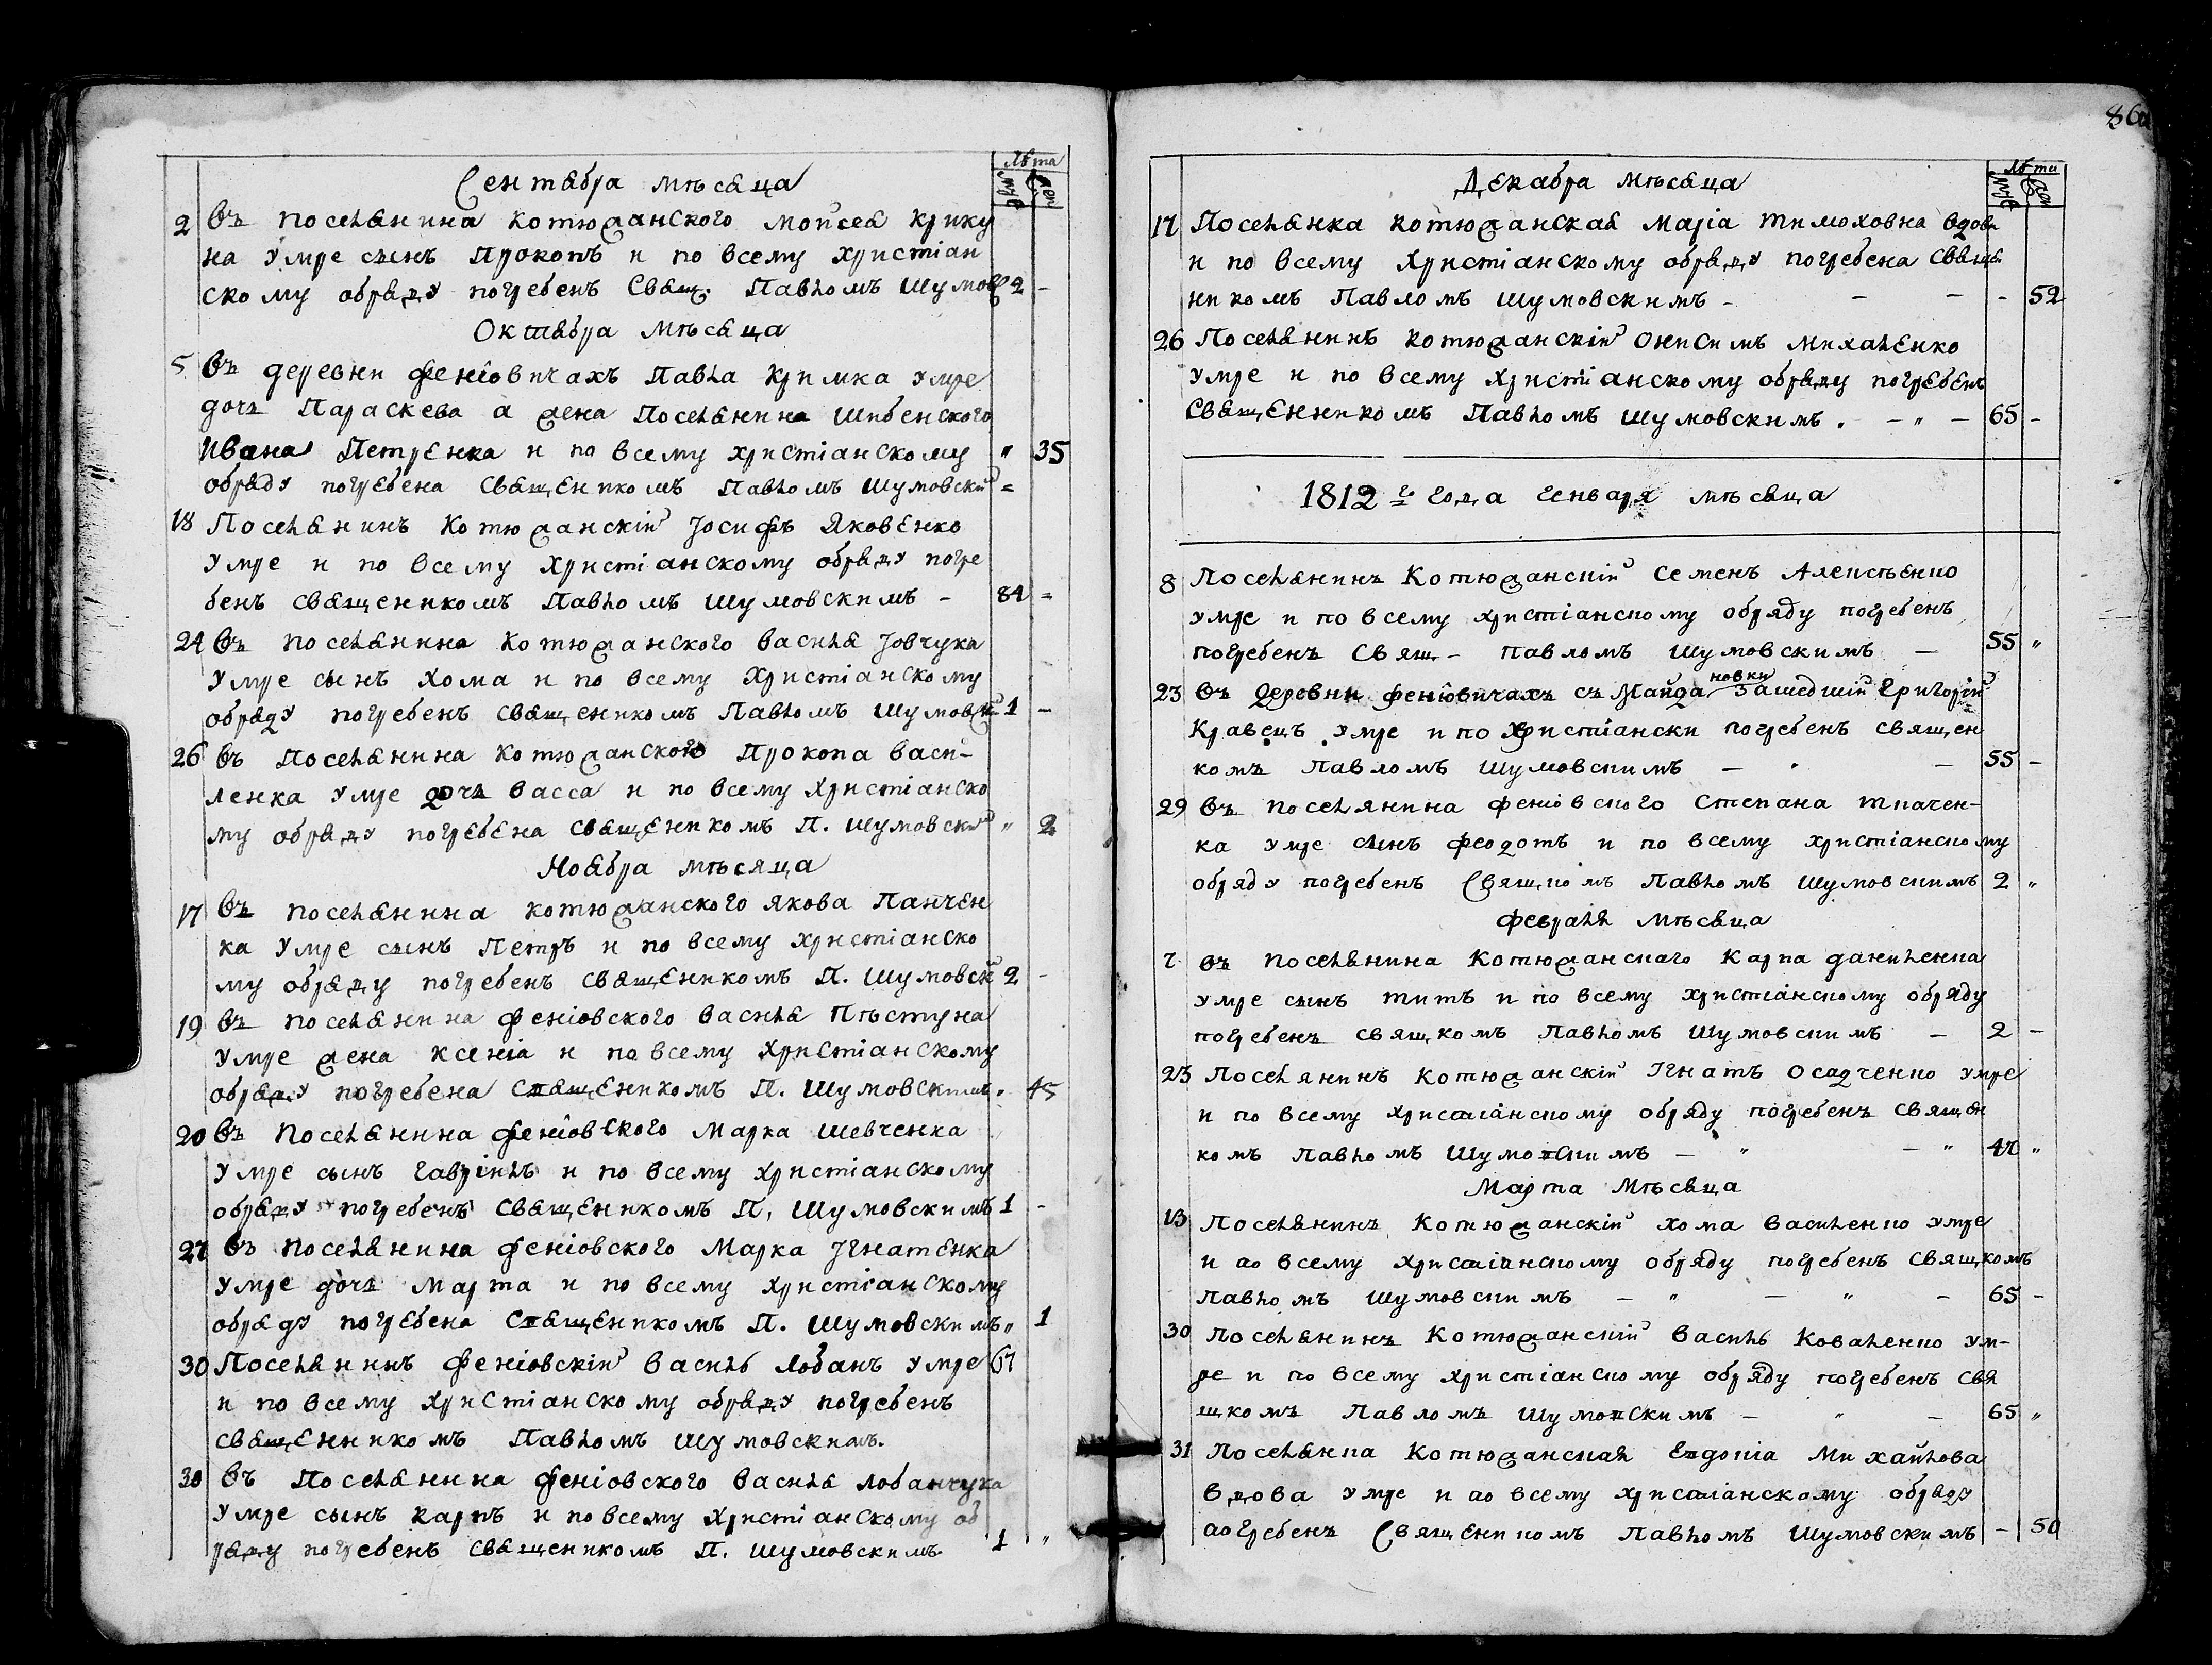 Сентября мѣсяца
Лѣта
муж жен
2 Въ поселянина котюжанского Мойсея Крику
на умре сынъ Прокопъ и по всему христіан
скому обряду погребенъ Свящ. Павломъ Шумов 2 -
Октября мѣсяца
5 Въ деревни Феніовичахъ Павла Кримка умре
дочь Параскева а жена Поселянина Шибенского
Ивана Петренка и по всему христіанскому " 35
обряду погребена священикомъ Павломъ Шумовски =
18 Поселянинъ Котюжанскій Іосифъ Яковенко
умре и по всему христіанскому обряду погре
бенъ священикомъ Павломъ Шумовскимъ - 84 =
24 Въ поселянина Котюжанского Василя Іовчука
умре сынъ Хома и по всему Христіанскому
обряду погребенъ священикомъ Павломъ Шумовски 1 -
26 Въ Поселянина Котюжанского Прокопа Васи-
ленка умре дочь Васса и по всему Христіанско
му обряду погребена священикомъ П. Шумовски " 2
Ноября мѣсяца
17 Въ поселянина котюжанского Якова Панчен
ка умре сынъ Петръ и по всему христіанско
му обряду погребенъ священикомъ П. Шумовски 2 -
19 Въ поселянина Феніовского Василя Пѣстуна
умре жена Ксенія и по всему Христіанскому
обряду погребена священикомъ П. Шумовскимъ " 45
20 Въ Поселянина Феніовского Марка Шевченка
умре сынъ Гавріилъ и по всему христіанскому
обряду погребенъ священикомъ П. Шумовскимъ 1 -
27 Въ поселянина Феніовского Марка Ігнатенка
умре дочь Марта и по всему христіанскому
обряду погребена священикомъ П. Шумовскимъ " 1
30 Поселянинъ Феніовскій Василь Лобанъ умре 67
и по всему христіанскому обряду погребенъ
священникомъ Павломъ Шумовскимъ.
30 Въ Поселянина Феніовского Василя Лобанчука
умре сынъ Карпъ и по всему христіанскому об
ряду погребенъ священикомъ П. Шумовскимъ 1 "
86
Декабря мѣсяца
Лѣта
муж жен
17 Поселянка котюжанская Марія Тимоховна вдова
и по всему Христіанскому обряду погребена свяще
никомъ Павломъ Шумовскимъ - - - - 52
26 Поселянинъ котюжанскій Онисимъ Михаленко
умре и по всему христіанскому обряду погребенъ
священникомъ Павломъ Шумовскимъ. - " - 65 -
1812 го года генваря мѣсяца
8 Поселянинъ Котюжанскій Семенъ Алексѣенко
умре и по всему христіанскому обряду погребенъ
погребенъ Свящ- Павломъ Шумовскимъ - 55 "
23 Въ деревни Феніовичахъ съ Майдановки зашедшій Григорій
Кравецъ умре и по христіански погребенъ священ
комъ Павломъ Шумовскимъ - " - 55 -
29 Въ поселянина феніовского Степана Ткачен-
ка умре сынъ Феодотъ и по всему христіанскому
обряду погребенъ Свящкомъ Павломъ Шумовскимъ 2 "
Февраля мѣсяца
7 Въ поселянина Котюжанскаго Карпа Даниленка
умре сынъ Титъ и по всему христіанскому обряду
погребенъ свящкомъ Павломъ Шумовскимъ - 2 -
23 Поселянинъ Котюжанскій Ігнатъ Осадченко умре
и по всему христіанскому обряду погребенъ священ
комъ Павломъ Шумовскимъ - " - " 47 "
Марта Мѣсяца
13 Поселянинъ Котюжанскій Хома Василенко умре
и по всему христіанскому обряду погребенъ свящкомъ
Павломъ Шумовскимъ - " - " - 65 -
30 Поселянинъ Котюжанскій Василь Коваленко ум-
ре и по всему христіанскому обряду погребенъ свя
щкомъ Павломъ Шумовскимъ - " - 65 "
31 Поселянка Котюжанская Евдокія Михайлова
вдова умре и по всему христіанскому обряду
погребенъ Священикомъ Павломъ Шумовскимъ - 50